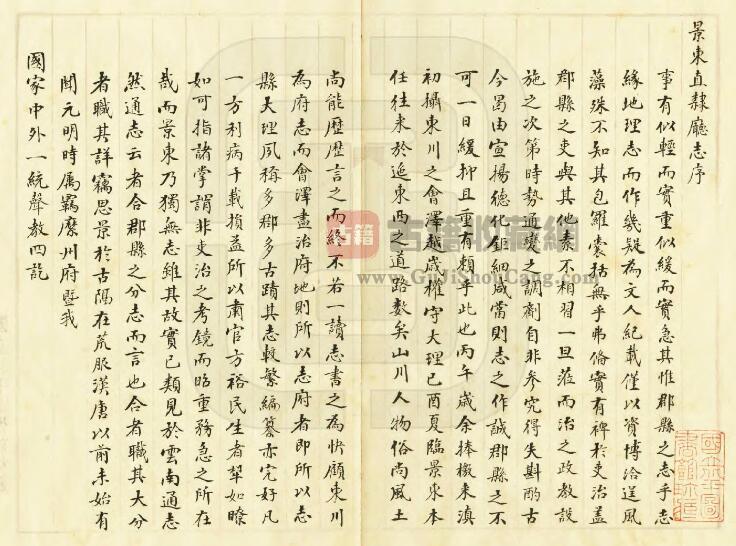 景東直隸廳志序
事有似輕而實重似緩而實急其惟郡縣之志乎志
緣地理志而作幾疑為文人紀載僅以資博洽逞風
藻殊不知其包羅囊括無乎弗備實有裨於吏治蓋
郡縣之吏與其他素不相習一旦蒞而治之政教設
施之次第時勢通變之調劑自非參究得失斟酌古
今曷由宣揚德化鉅細咸當則志之作誠郡縣之不
可一日緩抑且重有頼乎此也丙午歲余捧檄来滇
初攝東川之會澤越歲権守大理己酉夏臨景東本
任往来於迤東西之道路数矣山川人物俗尚風土
尚能歷歷言之而終不若一讀志書之為快顧東川
為府志而會澤盡治府地則所以志府者即所以志
縣大理夙稱多郡多古蹟其志較繁編纂亦完好凡
一方利病千載損益所以肅官方裕民生者犂如瞭
如可指諸掌謂非吏治之考鏡而昭重務急之所在
哉而景東乃獨無志雖其故實已類見於雲南通志
然通志云者合郡縣之分志而言也合者職其大分
者職其詳竊思景於古隅在荒服漢唐以前未始有
聞元明時属羈縻州府暨我
國家中外一統聲教四訖
古籍收藏網
www.GuJiShouCang.com